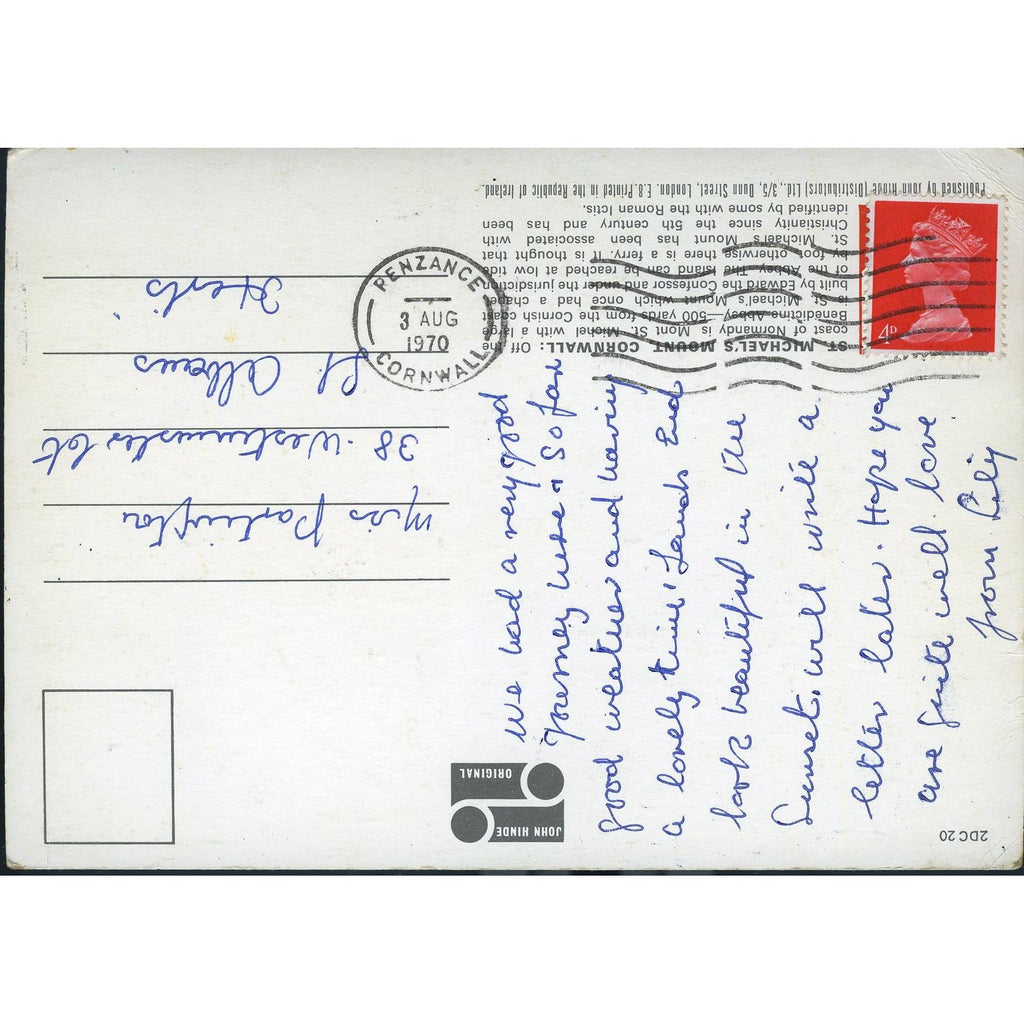 ST MICHAEL'S MOUNT CORNWALL: Off the
coast of Normandy is Mont St. Michel with a large
Benedictine Abbey—500 yards from the Cornish coast
is St. Michael's Mount which once had a chapel
built by Edward the Confessor and under the jurisdiction
of the Abbey. The island can be reached at low tide
by foot otherwise there is a ferry. It is thought that
St. Michael's Mount has been associated with
Christianity since the 5th century and has been
identified by some with the Roman Ictis.
Published by John Hinde (Distributors) Ltd., 3/5, Dunn Street, London, E.8. Printed in the Republic of Ireland.
2DC 20
JOHN HINDE
ORIGINAL
4D
PENZANCE
3 AUG
1970
CORNWALL
We had a very good
journey here & so far
good weather and having
a lovely time. Lands End
look beautiful in the
Sunset. will write a
letter later. Hope you
are quite well love
from Lily
Miss Partington
38 Westminster Ct
St. Albans
Herts